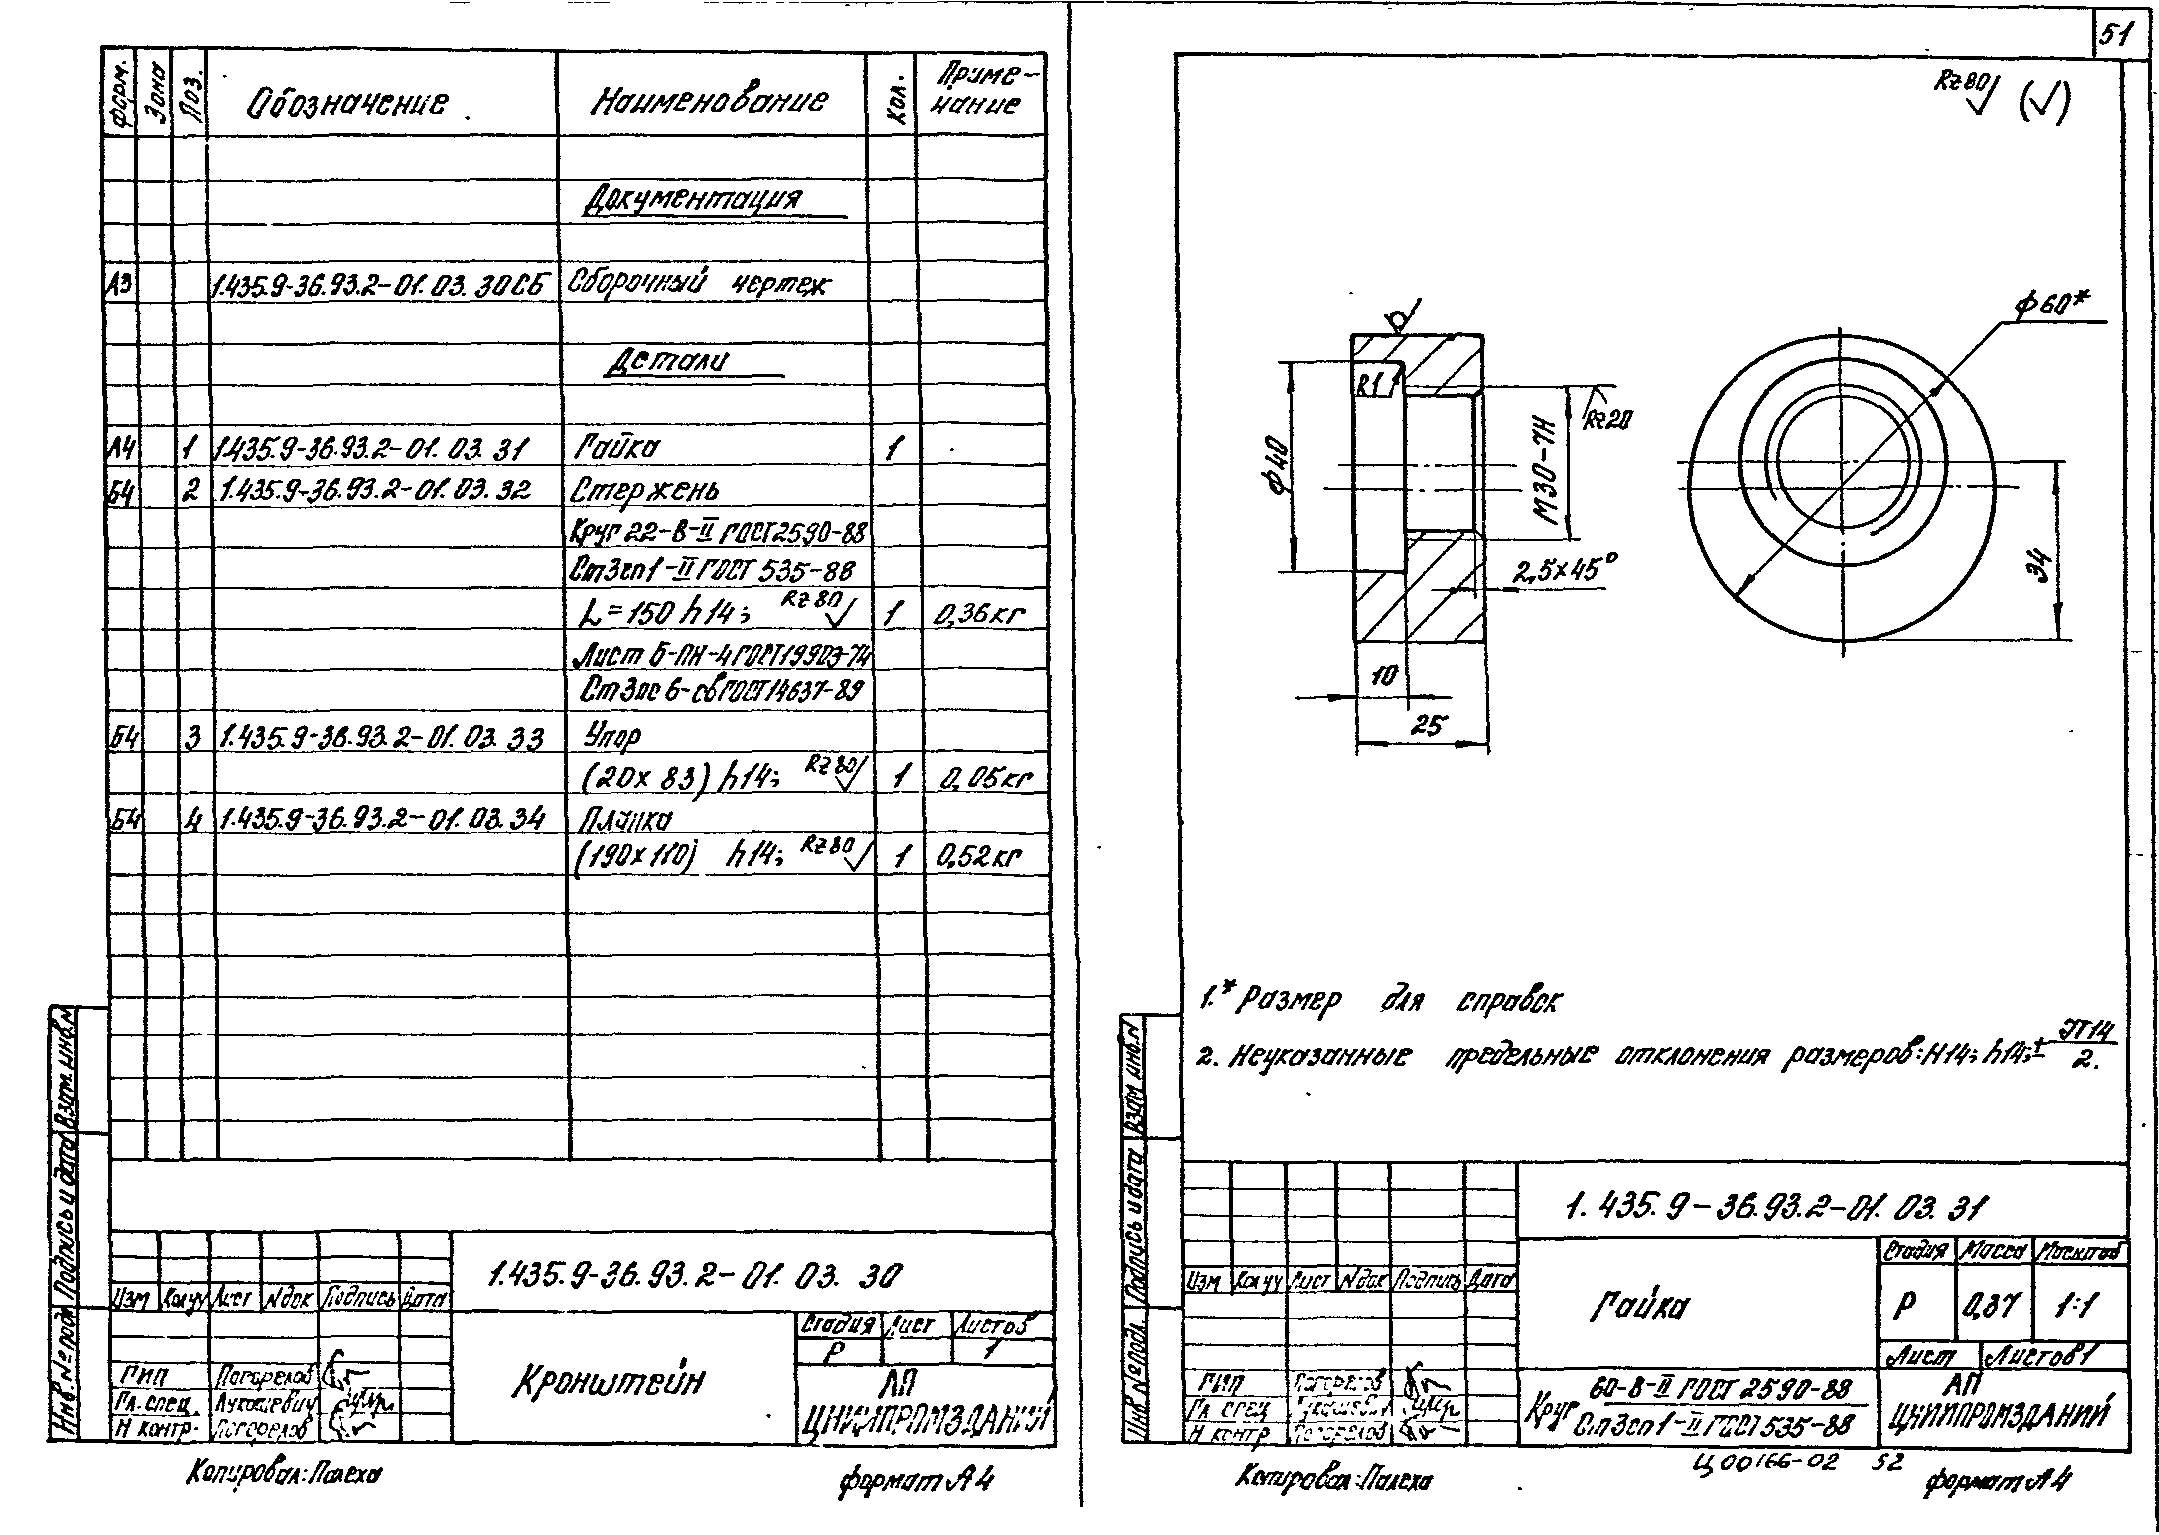 Форм.
Зона
Поз.
Обозначение
Наименование
Кол.
Приме-
чание
Документация
А3 1.435.9-36.93.2-01.03.30СБ Сборочный чертеж
Детали
А4 1 1.435.9-36.93.2-01.03.31 Гайка 1
Б4 2 1.435.9-36.93.2-01.03.32 Стержень
Круг 22-В-II ГОСТ 2590-88
Ст3сп1-II ГОСТ 535-88
L=150 h14; Rz80 1 0,36кг
Лист Б-ПН-4 ГОСТ 19903-74
Ст3пс6-св ГОСТ 14637-89
Б4 3 1.435.9-36.93.2-01.03.33 Упор
(20х83) h14; Rz80 1 0,05кг
Б4 4 1.435.9-36.93.2-01.03.34 Планка
(190х110) h14; Rz80 1 0,52кг
Взам. инв. N
Подпись и дата
Инв. № подл.
1.435.9-36.93.2-01.03.30
Изм Кол.уч Лист Nдок Подпись Дата
Стадия Лист Листов
Р 1
Кронштейн
ГИП Погорелов
Гл. спец. Лукашевич
Н контр. Погорелов
АП
ЦНИИПРОМЗДАНИЙ
Копировал: Палеха
формат А4
51
Rz80 (√)
ф60*
R1
Rz20
ф40
М30-7Н
2,5×45°
34
10
25
1.* Размер для справок
2. Неуказанные предельные отклонения размеров: Н14; h14; ± IT14
2.
Взам. инв. N
Подпись и дата
Инв № подл.
1.435.9-36.93.2-01.03.31
Изм Кол.уч Лист Nдок Подпись Дата
Стадия Масса Масштаб
Гайка
Р 0,37 1:1
Лист Листов 1
ГИП Погорелов
Гл. спец Лукашевич
Н контр Погорелов
Круг
60-В-II ГОСТ 2590-88
Ст3сп1-II ГОСТ 535-88
АП
ЦНИИПРОМЗДАНИЙ
Ц00166-02 52
Копировал: Палеха
формат А4